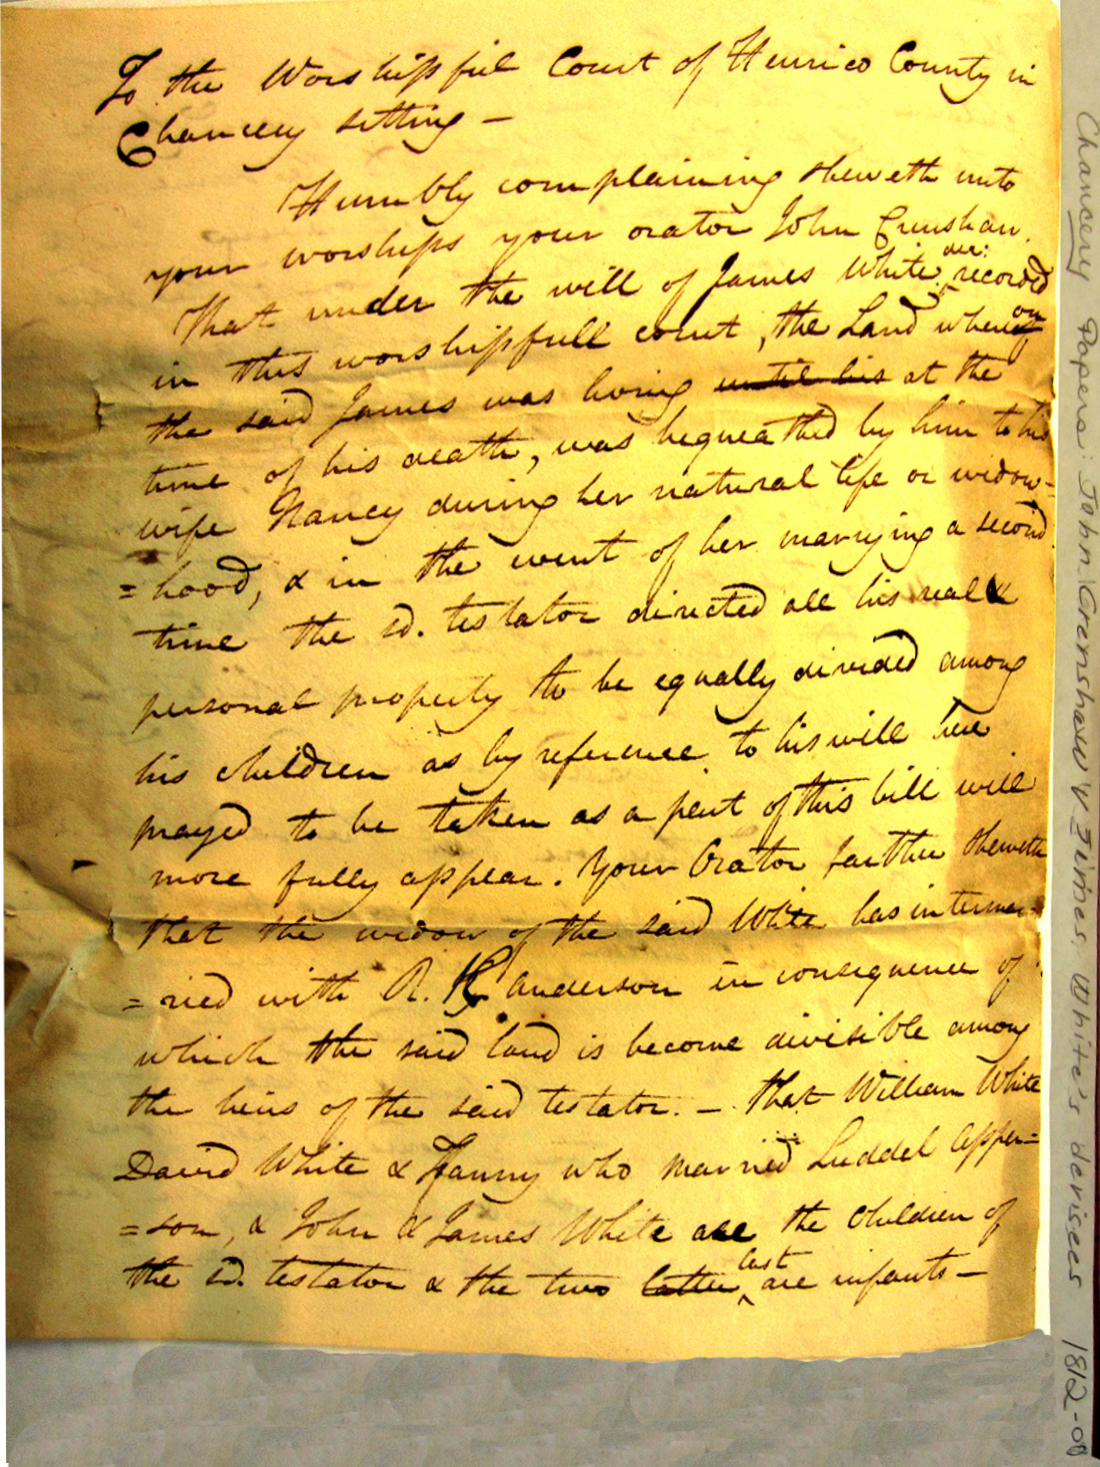 To the Worshipful Court of Henrico County in
Chancery sitting —
Humbly complaining sheweth unto
your worships your orator John Crenshaw.
That under the will of James White dec: recorded
in this worshipfull court, the Land whereon
the said James was living until his at the
time of his death, was bequeathed by him to his
wife Nancy during her natural life or widow-
=hood, & in the event of her marrying a second
time the sd. testator directed all his real &
personal property to be equally divided among
his children as by reference to his will here
prayed to be taken as a part of this bill will
more fully appear. Your Orator farther sheweth
that the widow of the said White has intermar-
=ried with R. K. Anderson in consequence of
which the said land is become divisible among
the heirs of the said testator. — That William White
David White & Fanny who married Luddel Apper=
=son, & John & James White are the children of
the sd. testator & the two latter last are infants —
Chancery Papers: John Crenshaw v James White's devisees 1812-08